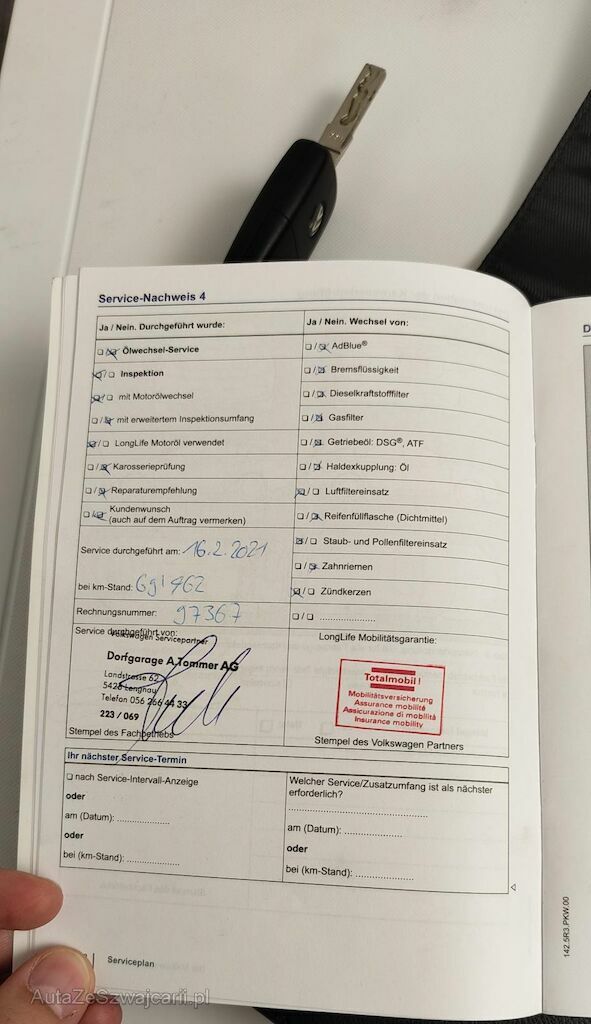 Service-Nachweis 4
Ja / Nein. Durchgeführt wurde:
❏/❏ Ölwechsel-Service
❏/❏ Inspektion
❏/❏ mit Motorölwechsel
❏/❏ mit erweitertem Inspektionsumfang
❏/❏ LongLife Motoröl verwendet
❏/❏ Karosserieprüfung
❏/❏ Reparaturempfehlung
❏/❏ Kundenwunsch
(auch auf dem Auftrag vermerken)
Service durchgeführt am: 16.2.2021
bei km-Stand: 69'462
Rechnungsnummer: 97367
Service durchgeführt von:
Volkswagen Servicepartner
Dorfgarage A. Tommer AG
Landstrasse 62
5426 Lengnau
Telefon 056 266 44 33
223 / 069
Stempel des Fachbetriebs
Ja / Nein. Wechsel von:
❏/❏ AdBlue®
❏/❏ Bremsflüssigkeit
❏/❏ Dieselkraftstofffilter
❏/❏ Gasfilter
❏/❏ Getriebeöl: DSG®, ATF
❏/❏ Haldexkupplung: Öl
❏/❏ Luftfiltereinsatz
❏/❏ Reifenfüllflasche (Dichtmittel)
❏/❏ Staub- und Pollenfiltereinsatz
❏/❏ Zahnriemen
❏/❏ Zündkerzen
❏/❏ .....................
LongLife Mobilitätsgarantie:
Totalmobil!
Mobilitätsversicherung
Assurance mobilité
Assicurazione di mobilità
Insurance mobility
Stempel des Volkswagen Partners
Ihr nächster Service-Termin
❏ nach Service-Intervall-Anzeige
oder
am (Datum): ....................
oder
bei (km-Stand): ....................
Welcher Service/Zusatzumfang ist als nächster
erforderlich?
..................................................
am (Datum): ......................
oder
bei (km-Stand): ......................
Serviceplan
142.5R3.PKW.00
D
AutaZeSzwajcarii.pl